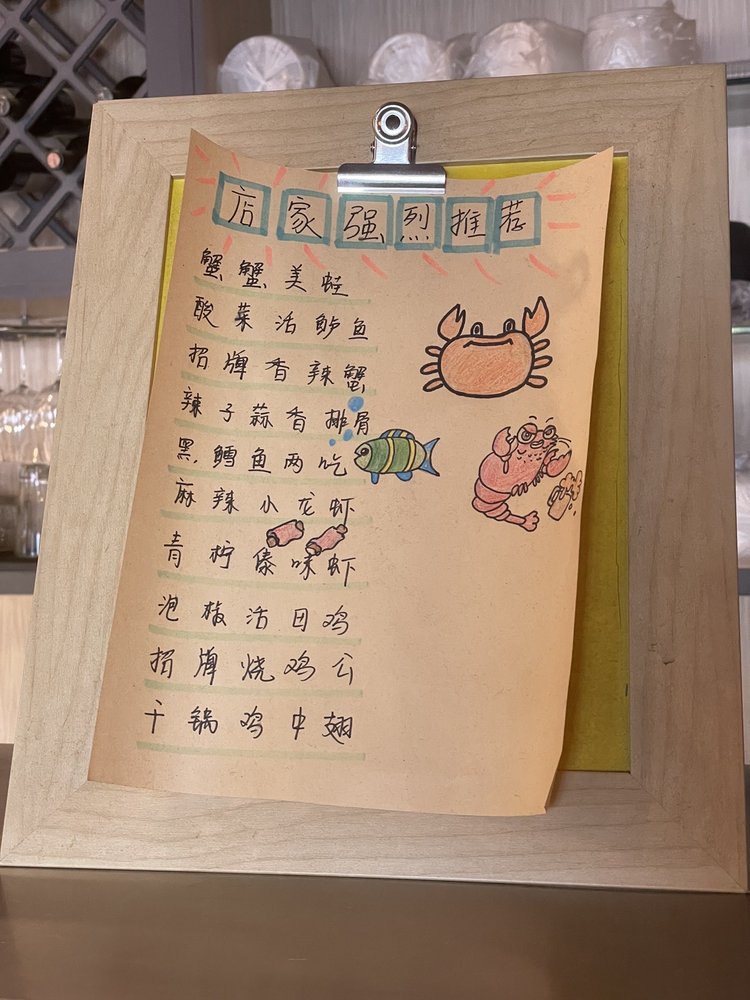 店家强烈推荐
蟹蟹美蛙
酸菜活鲈鱼
招牌香辣蟹
辣子蒜香排骨
黑鳕鱼两吃
麻辣小龙虾
青柠傣味虾
泡椒活田鸡
招牌烧鸡公
干锅鸡中翅